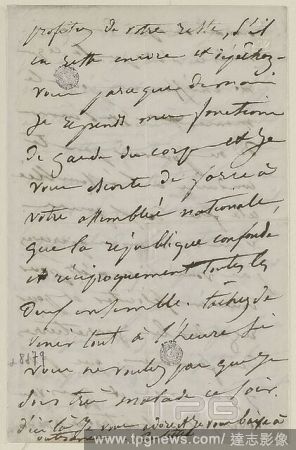 profitez de votre reste, s'il
en reste encore et dépêchez-
vous parce que demain
je reprends mes fonctions
de garde du corps et je
vous escorte de force à
votre assemblée nationale,
que la république confonde
et réciproquement toutes les
deux ensemble. tâchez de
venir tout à l'heure si
vous ne voulez pas que je
sois très malade ce soir.
d'ici là je vous adore et je vous baise à
28179
TPG
www.tpgnews.com/ 達志影像